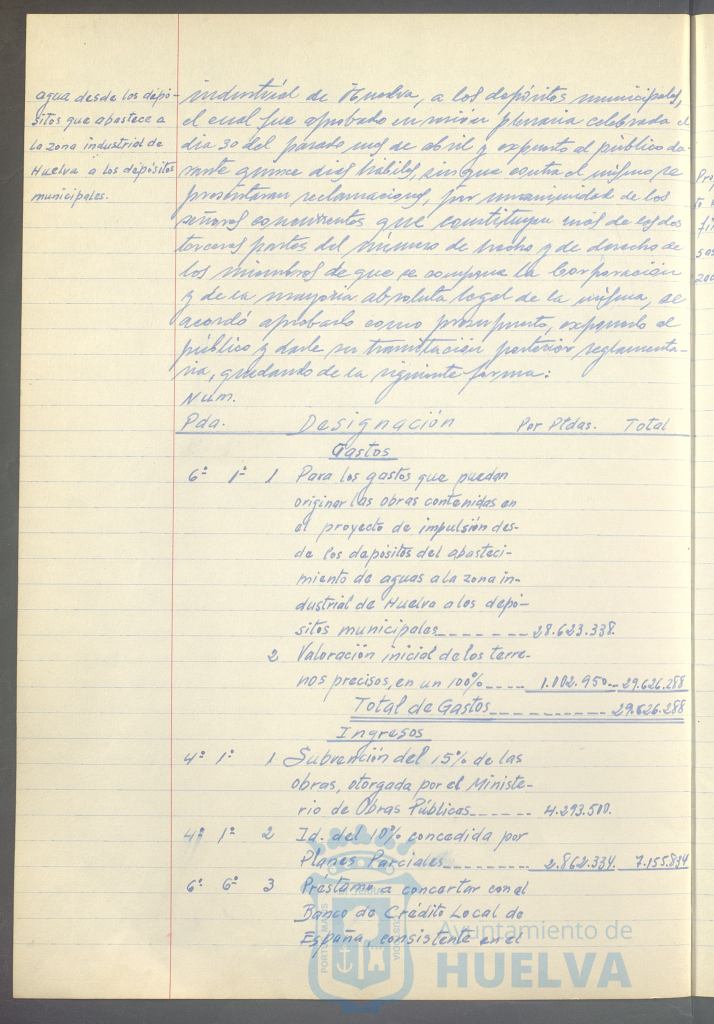 agua desde los depó-
sitos que abastece a
la zona industrial de
Huelva a los depósitos
municipales.
industrial de Huelva, a los depósitos municipales,
el cual fue aprobado en sesión plenaria celebrada el
día 30 del pasado mes de abril y expuesto al público du-
rante quince días hábiles, sin que contra el mismo, se
presentaran reclamaciones, por unanimidad de los
señores concurrentes que constituyen más de las dos
terceras partes del número de hecho y de derecho de
los miembros de que se compone la Corporación
y de la mayoría absoluta legal de la misma, se
acordó aprobarlo como presupuesto, exponerlo al
público y darle su tramitación posterior reglamenta-
ria, quedando de la siguiente forma:
Núm.
Pda. Designación Por Ptdas. Total
Gastos
6º 1º 1 Para los gastos que puedan
originar las obras contenidas en
el proyecto de impulsión des-
de los depósitos del abasteci-
miento de aguas a la zona in-
dustrial de Huelva a los depó-
sitos municipales 28.623.338.
2 Valoración inicial de los terre-
nos precisos, en un 100% 1.002.950.- 29.626.288
Total de Gastos 29.626.288
Ingresos
4º 1º 1 Subvención del 15% de las
obras, otorgada por el Ministe-
rio de Obras Públicas 4.293.500.
4º 1º 2 Id. del 10% concedida por
Planes Parciales 2.862.334. 7.155.834
6º 6º 3 Préstamo a concertar con el
Banco de Crédito Local de
España, consistente en el
Ayuntamiento de
HUELVA